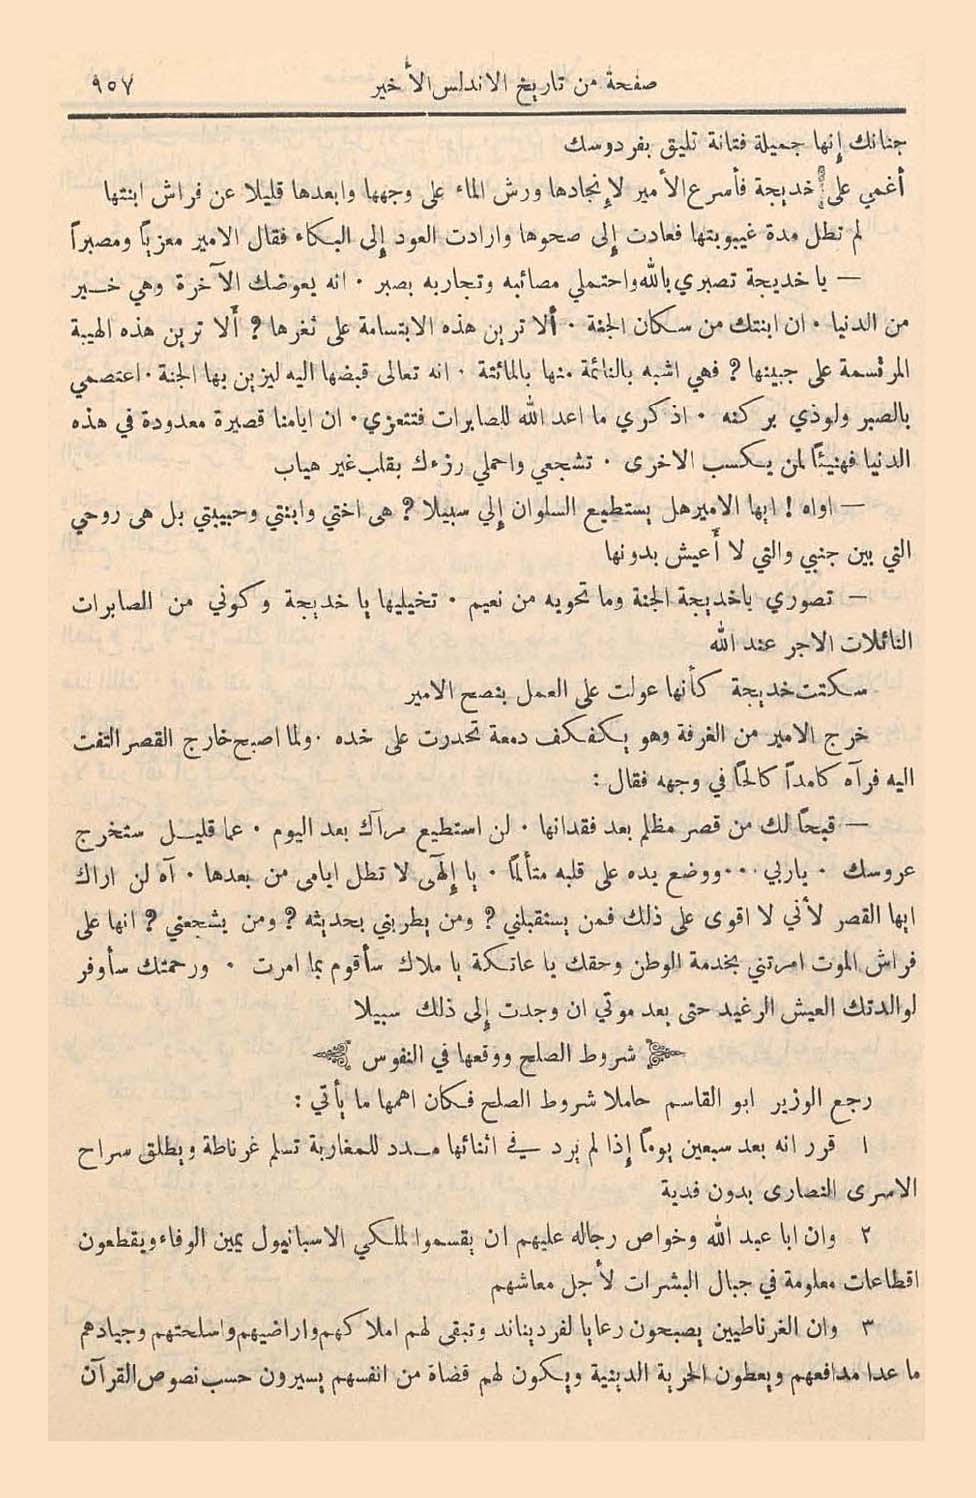 صفحة من تاريخ الاندلس الأخير ٩٥٧
جنانك إنها جميلة فتانة تليق بفردوسك
أغمي على خديجة فأسرع الأمير لإنجادها ورش الماء على وجهها وابعدها قليلا عن فراش ابنتها
لم تطل مدة غيبوبتها فعادت إلى صحوها وارادت العود إلى البكاء فقال الامير معزياً ومصبراً
— يا خديجة تصبري بالله واحتملي مصائبه وتجاربه بصبر . انه يعوضك الآخرة وهي خير
من الدنيا . ان ابنتك من سكان الجنة . ألا ترين هذه الابتسامة على ثغرها ؟ ألا ترين هذه الهيبة
المرتسمة على جبينها ؟ فهي اشبه بالنائمة منها بالمائتة . انه تعالى قبضها اليه ليزين بها الجنة . اعتصمي
بالصبر ولوذي بركنه . اذكري ما اعد الله للصابرات فتتعزي . ان ايامنا قصيرة معدودة في هذه
الدنيا فهنيئاً لمن يكسب الاخرى . تشجعي واحملي رزءك بقلب غير هياب
— اواه ! ايها الامير هل يستطيع السلوان إلي سبيلا ؟ هي اختي وابنتي وحبيبتي بل هي روحي
التي بين جنبي والتي لا أعيش بدونها
— تصوري ياخديجة الجنة وما تحويه من نعيم . تخيليها يا خديجة وكوني من الصابرات
النائلات الاجر عند الله
سكتت خديجة كأنها عولت على العمل بنصح الامير
خرج الامير من الغرفة وهو يكفكف دمعة تحدرت على خده . ولما اصبح خارج القصر التفت
اليه فرآه كامداً كالحاً في وجهه فقال :
— قبحاً لك من قصر مظلم بعد فقدانها . لن استطيع مرآك بعد اليوم . عما قليل ستخرج
عروسك . ياربي ... ووضع يده على قلبه متألماً . يا إلهي لا تطل ايامي من بعدها . آه لن اراك
ايها القصر لأني لا اقوى على ذلك فمن يستقبلني ؟ ومن يطربني بحديثه ؟ ومن يشجعني ؟ انها على
فراش الموت امرتني بخدمة الوطن وحقك يا عاتكة يا ملاك سأقوم بما امرت . ورحمتك سأوفر
لوالدتك العيش الرغيد حتى بعد موتي ان وجدت إلى ذلك سبيلا
شروط الصلح ووقعها في النفوس
رجع الوزير ابو القاسم حاملا شروط الصلح فكان اهمها ما يأتي :
١ قرر انه بعد سبعين يوماً إذا لم يرد في اثنائها مدد للمغاربة تسلم غرناطة ويطلق سراح
الاسرى النصارى بدون فدية
٢ وان ابا عبد الله وخواص رجاله عليهم ان يقسموا لملكي الاسبانيول يمين الوفاء ويقطعون
اقطاعات معلومة في جبال البشرات لأجل معاشهم
٣ وان الغرناطيين يصبحون رعايا لفرديناند وتبقى لهم املاكهم واراضيهم واسلحتهم وجيادهم
ما عدا مدافعهم ويعطون الحرية الدينية ويكون لهم قضاة من انفسهم يسيرون حسب نصوص القرآن